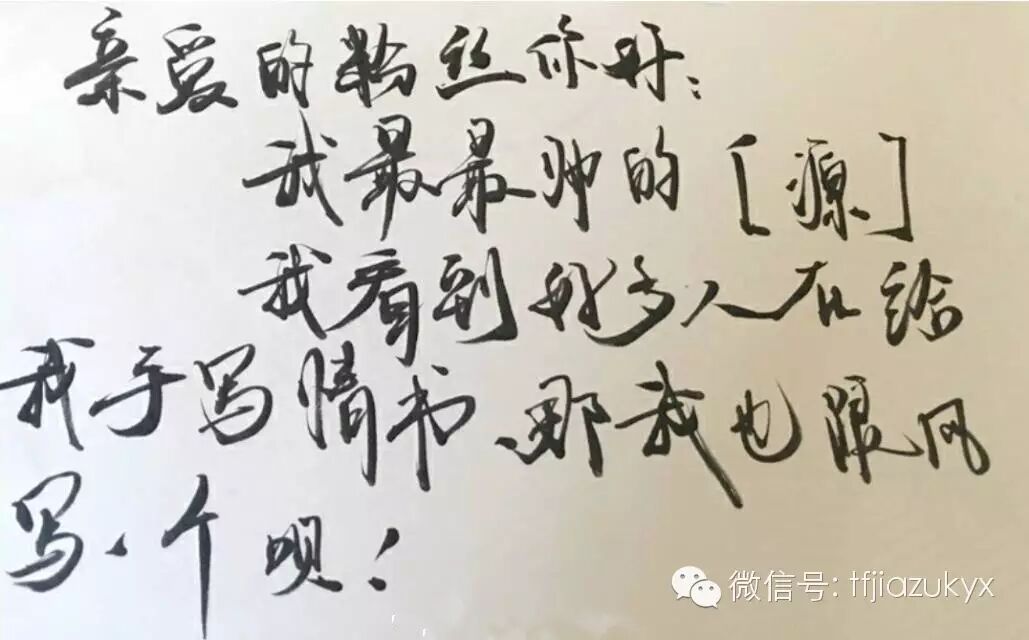 亲爱的粉丝你好：
我最最帅的[源]
我看到好多人在给
我手写情书、那我也跟风
写一个呗！
微信号: tfjiazukyx